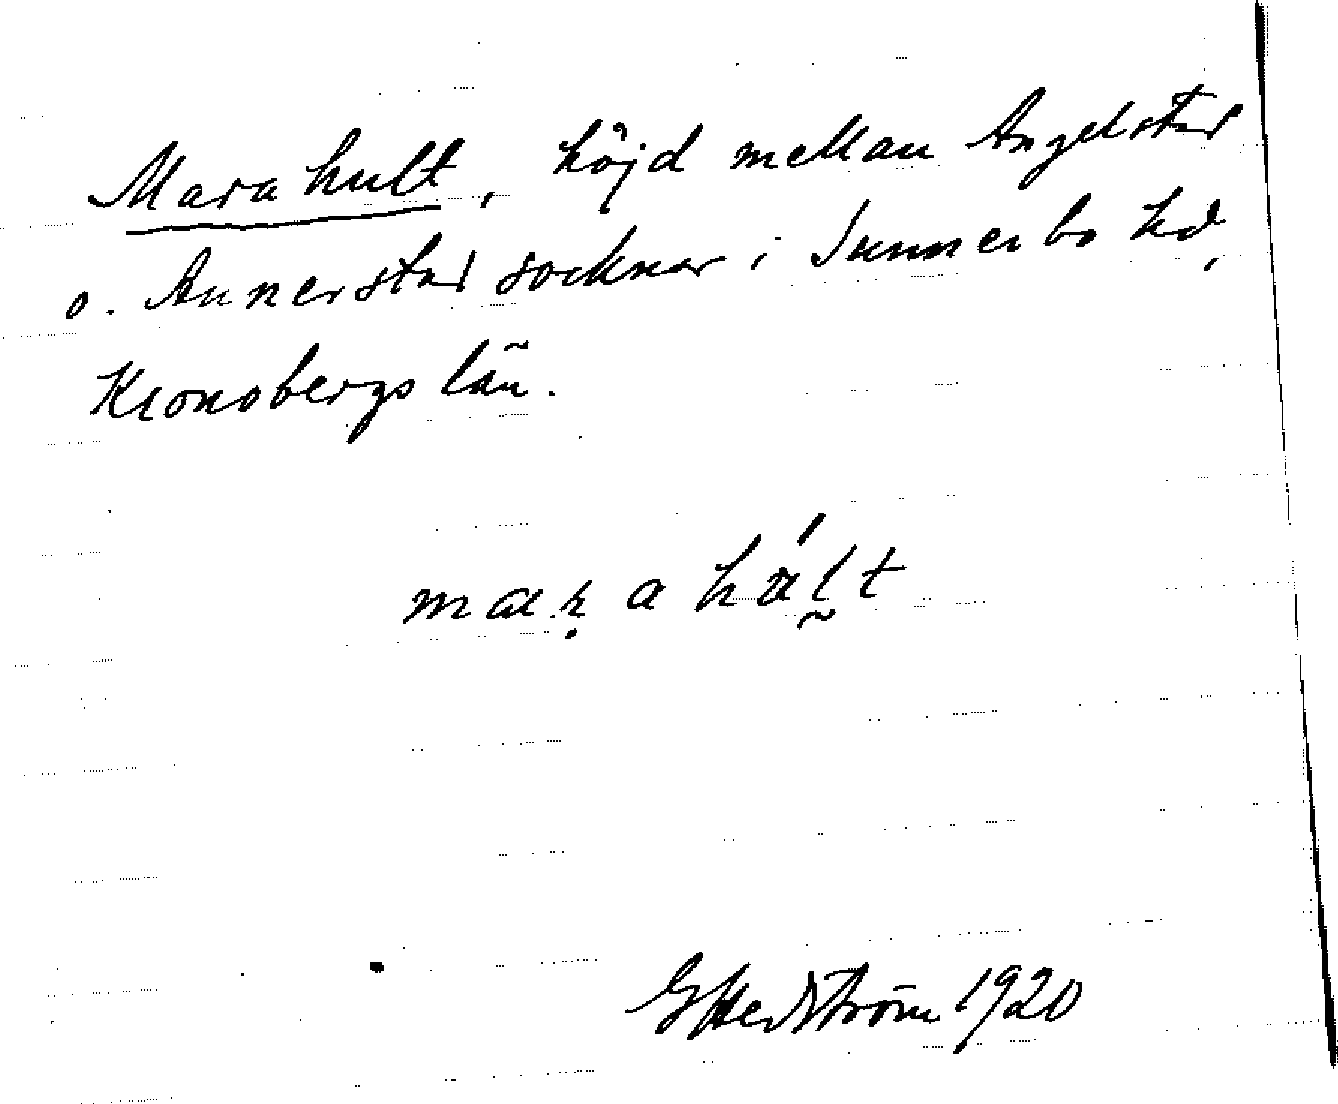 Marahult, höjd mellan Angelstad
o. Annerstad socknar i Sunnerbo hd,
Kronobergs län.
maɀ̣ahál̰t
G Hedström 1920